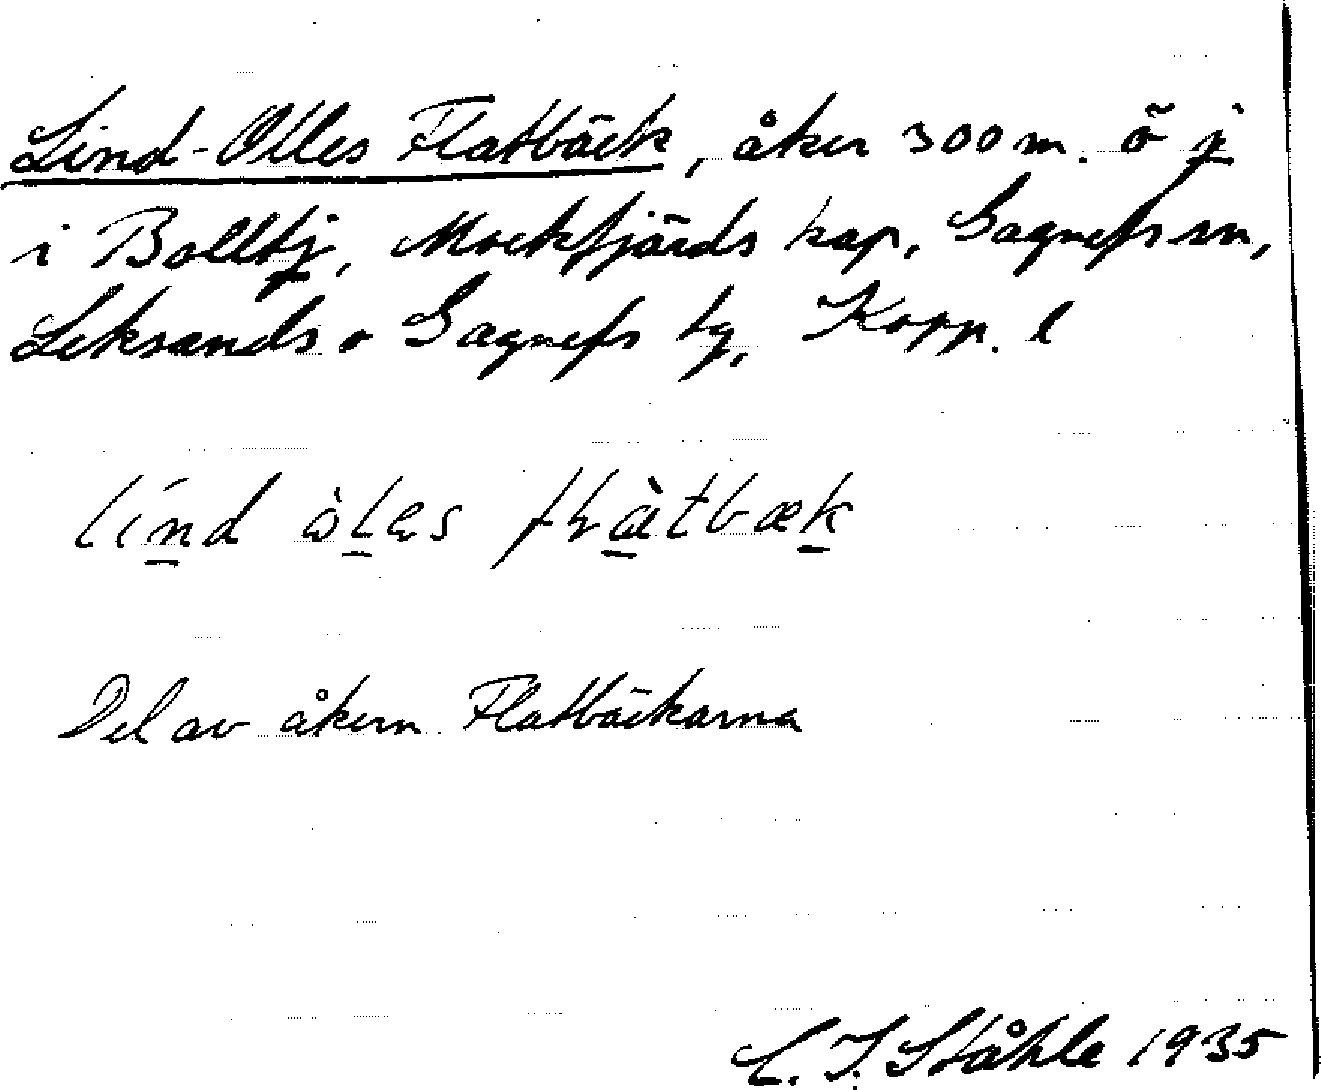 Lind-Olles Flatbäck, åker 300 m. ö j
i Bolltj, Mockfjärds kap, Gagnefs sn,
Leksands o Gagnefs tg, Kopp. l
Del av åkern Flatbäckarna
C. I. Ståhle 1935